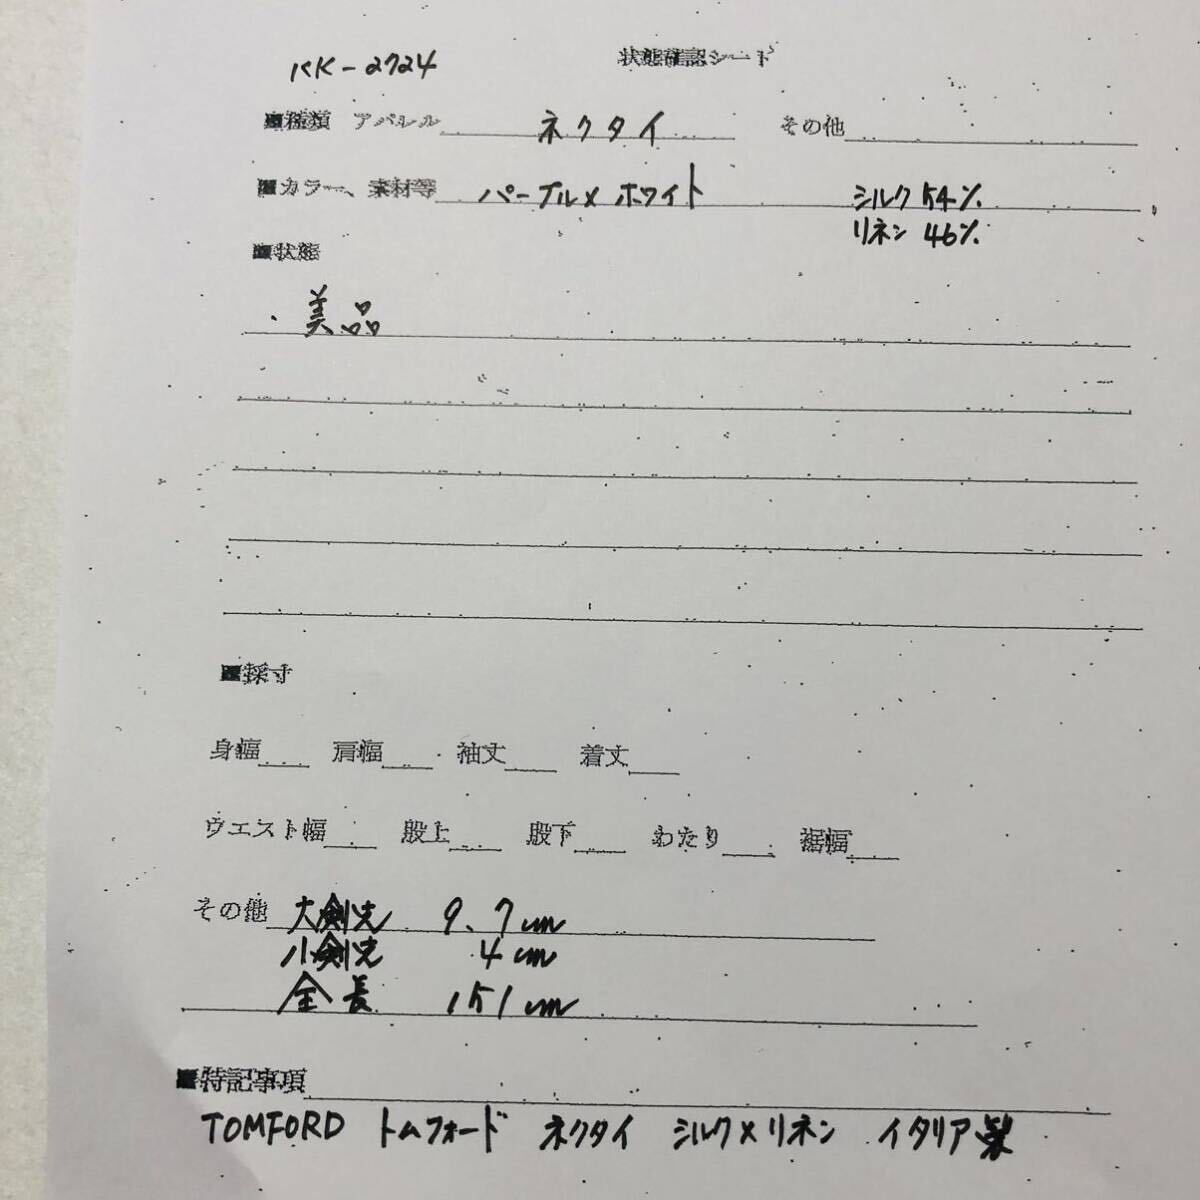 KK-2724 状態確認シート
■種類 アパレル ネクタイ その他
■カラー、素材等 パープル×ホワイト シルク54%
リネン 46%
■状態
・美品
■採寸
身幅 肩幅 袖丈 着丈
ウエスト幅 股上 股下 わたり 裾幅
その他 大剣先 9.7cm
小剣先 4cm
全長 151cm
■特記事項
TOMFORD トムフォード ネクタイ シルク×リネン イタリア製